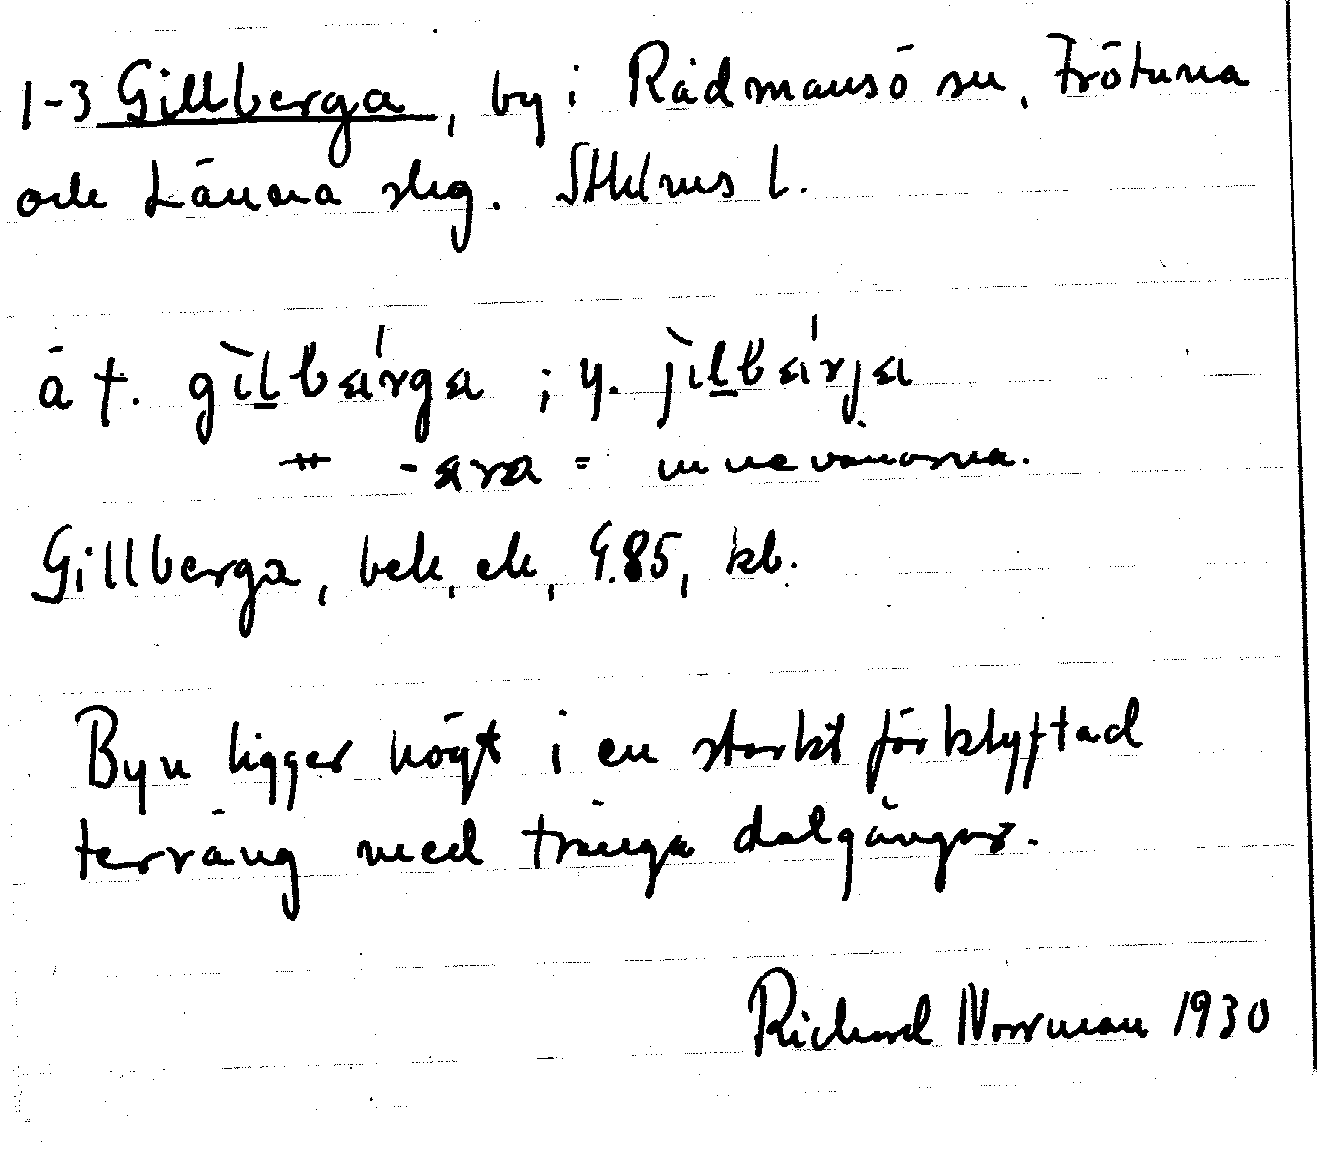 1-3 Gillberga, by i Rådmansö sn, Frötuna
och Länna skg. Sthlms l.
ä t. gìlbárga ; y. jìlbárja
" -ara = innevånarna.
Gillberga, bek, ek, G.85, kb.
Byn ligger högt i en starkt förklyftad
terräng med trånga dalgångar.
Richard Norrman 1930